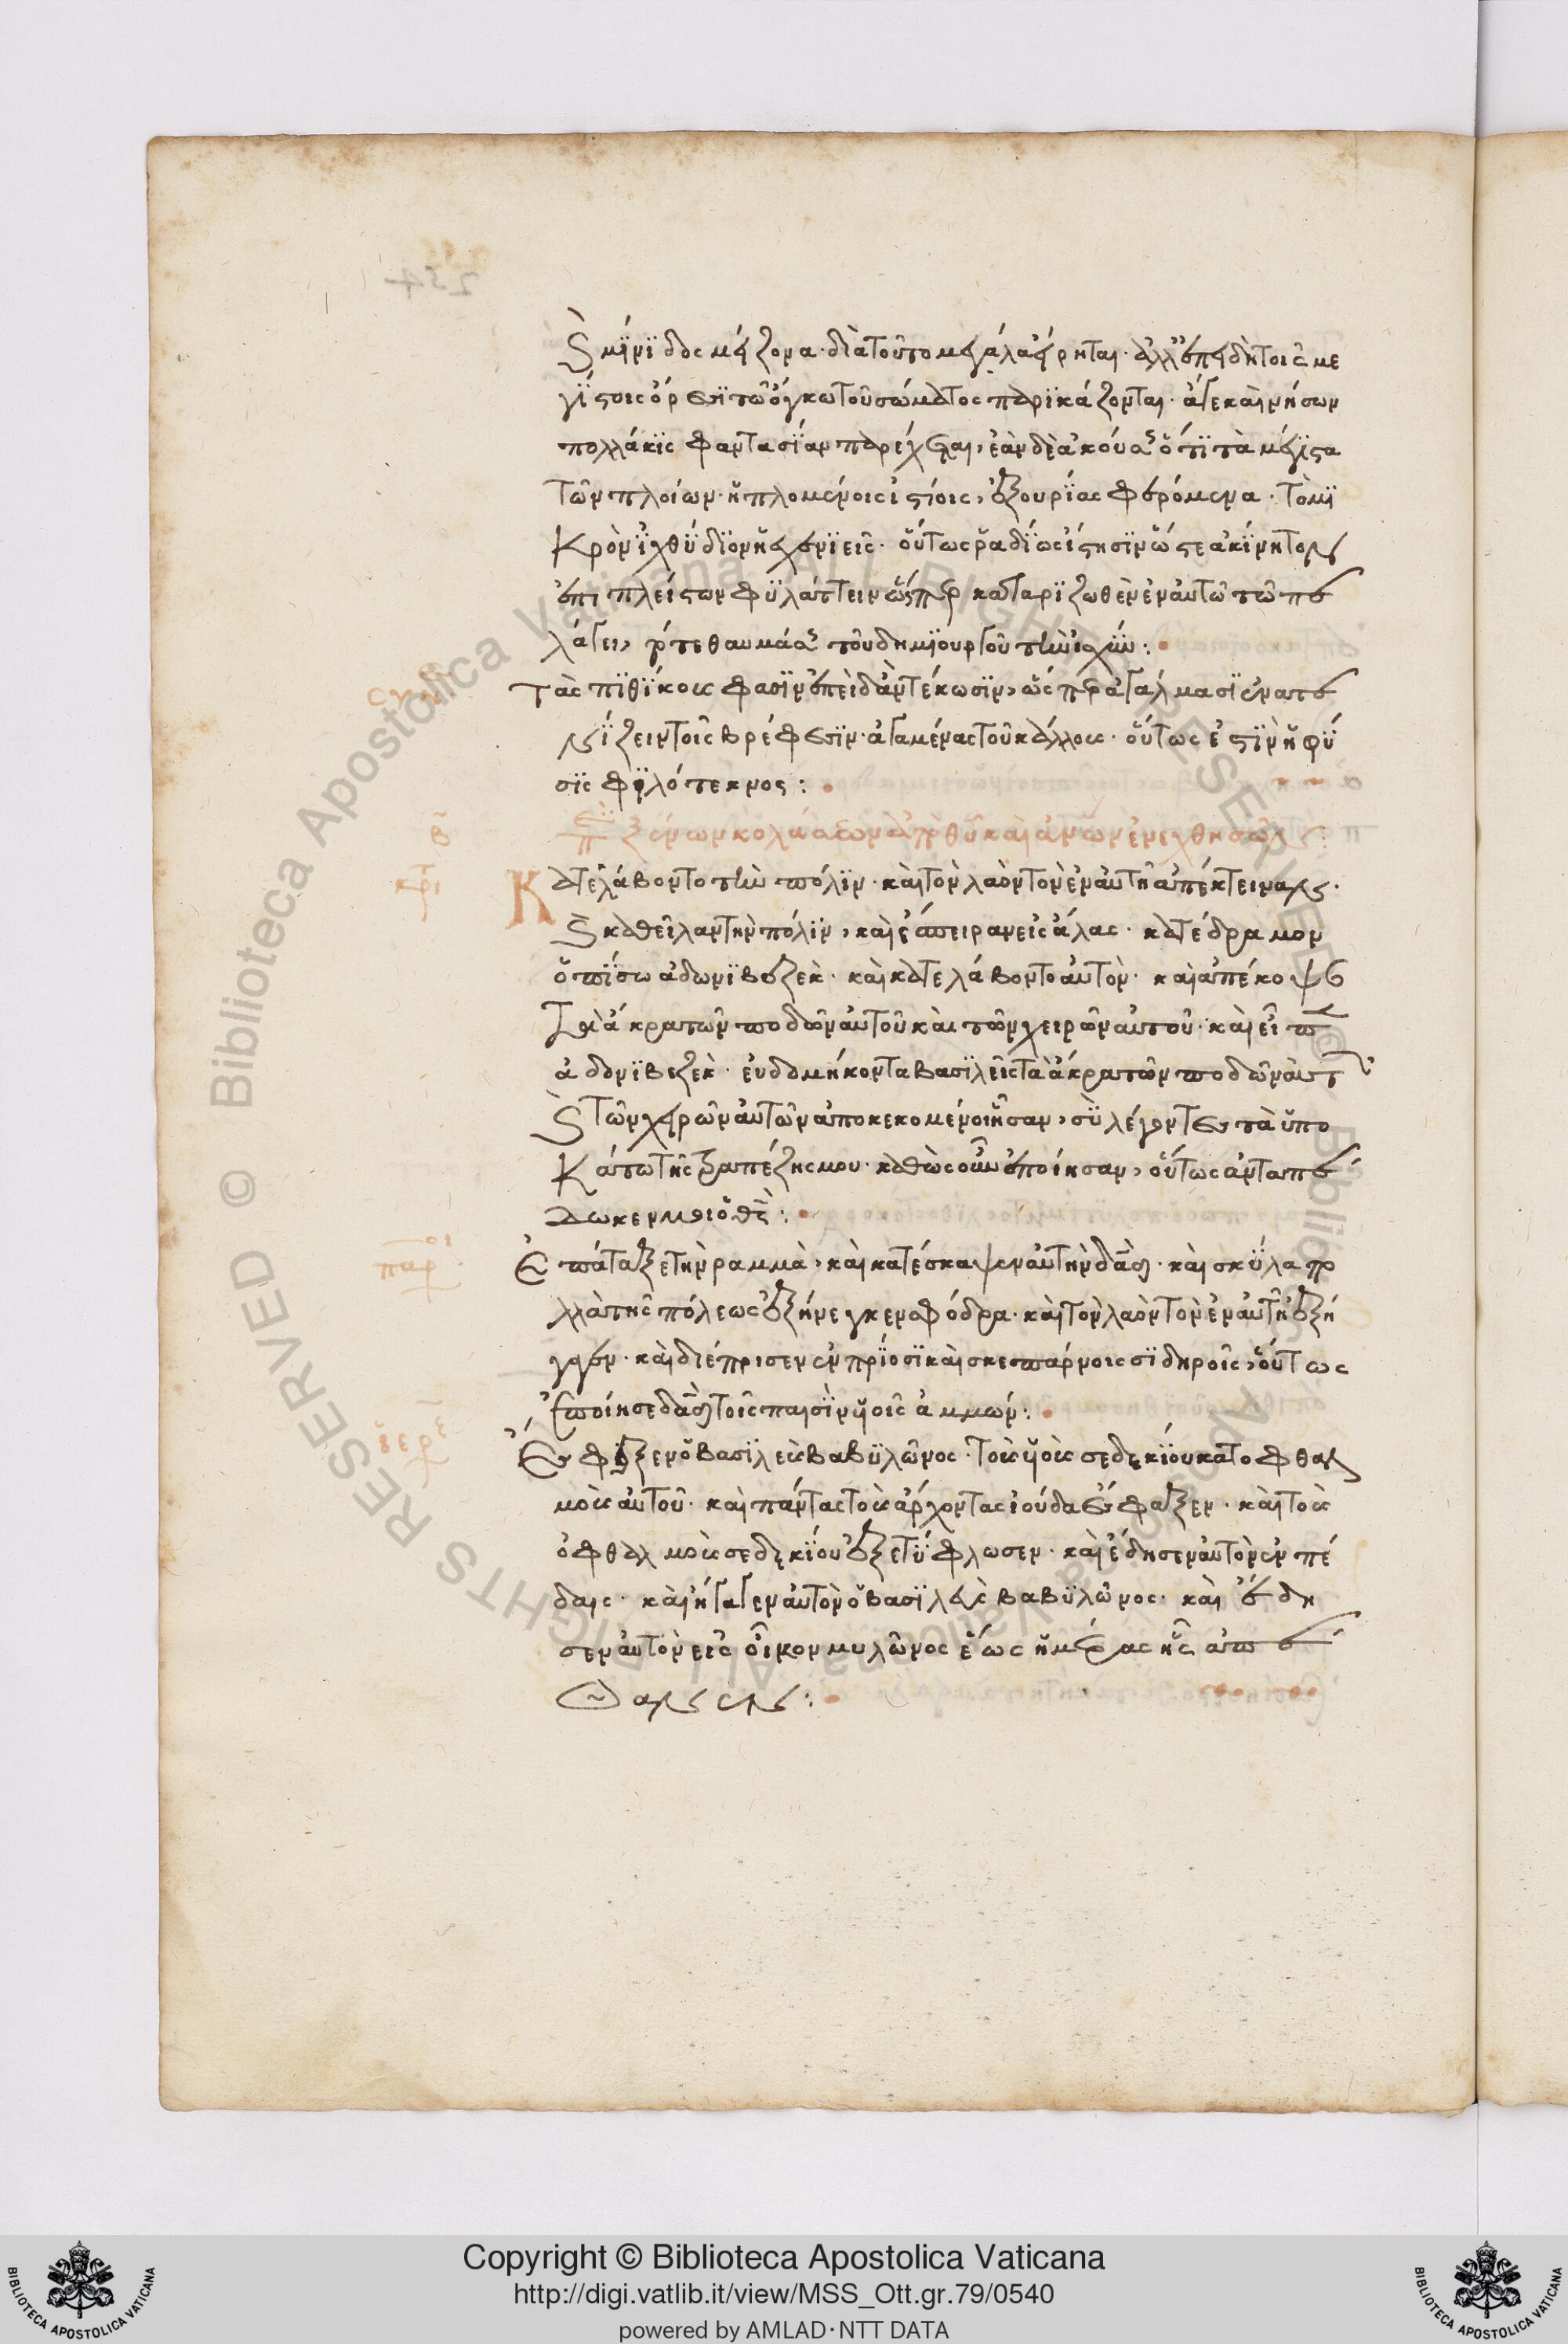 καὶ μϊνϊδος μείζονα· διατοῦτο μεγάλα εἴρηται· ἀλλ' ἐπειδὴ τοῖς με
γΐστοις ὄρεσϊ τῶ ὄγκω τοῦ σώματος παρϊκάζονται· ἅγε καὶ νήσων
πολλάκϊς φαντασΐαν παρέχεσθαι, ἐὰν δὲ ἀκούσης ὅτϊ τὰ μέγϊστα
τῶν πλοίων· ἡπλομένοις ἱστίοις, ἐξουρΐας φερόμενα· τὸ μϊ
κρὸν ϊχθϋδϊον ἡ ἐχενϊεὶς· οὕτως ῥαδΐως ΐστησϊν ὥστε ἀκϊνητον
ἐπιπλεῖστον φϋλάττειν ὥσπερ καταρϊζωθὲν ἐν αὐτῶ τῶ πε
λάγει, οὔτε θαυμάσης τοῦ δημϊουργοῦ τὴν ἰσχϋν:
Τὰς πϊθϊκους φασϊν ἐπειδὰν τέκωσϊν, ὥσπερ ἀγάλμασϊ ἐνατε
νΐζειν τοῖς βρέφεσϊν· ἀγαμένας τοῦ κάλλους· οὕτως ἐστϊν ἡ φύ
σϊς φϊλότεκνος:
β
κρι
Κατελάβοντο τὴν πόλϊν· καὶ τὸν λαὸν τὸν ἐν αὐτῆ ἀπέκτειναν·
καὶ καθεῖλαν τὴν πόλϊν, καὶ ἔσπειραν εἰς ἅλας· κατέδραμον
ὀπΐσω ἀδωνϊβεζεκ· καὶ κατελάβοντο αὐτὸν· καὶ ἀπέκοψε
τὰ ἄκρα τῶν ποδῶν αὐτοῦ καὶ τῶν χειρῶν αὐτοῦ· καὶ εἶπ
ἀδονϊβεζεκ· ἐυδομήκοντα βασϊλεῖς τὰ ἄκρα τῶν ποδῶν αὐτ
καὶ τῶν χειρῶν αὐτῶν ἀποκεκομένοι ἦσαν, σϋλέγοντες τὰ ὑπο
κάτω τῆς τραπέζης μου· καθὼς οὖν ἐποίησαν, οὕτως ἀνταπέ
δωκεν μοι ὁ θς:
παρ
Ἐπάταξε τὴν ραμμὰ, καὶ κατέσκαψεν αὐτὴν δαδ· καὶ σκϋλα πο
λλὰ τῆς πόλεως ἐξήνεγκεν σφόδρα· καὶ τὸν λαὸν τὸν ἐν αὐτῆ ἐξή
γαγεν· καὶ διέπρισεν ἐν πρΐοσϊ καὶ σκεπάρνοις σϊδηροῖς, οὕτως
ἐποίησε δαδ τοῖς παισϊν ϋἱοῖς ἀμμών:
Ἔσφαξεν ὁ βασϊλεὺς βαβϋλῶνος· τοὺς ϋἱοὺς σεδεκϊου κατοφθαλ
μοὺς αὐτοῦ· καὶ πάντας τοὺς ἄρχοντας ἰούδα ἔσφαξεν· καὶ τοὺς
ὀφθαλμοὺς σεδεκϊου ἐξετΰφλωσεν· καὶ ἔδησεν αὐτὸν ἐν πέ
δαις· καὶ ἤγαγεν αὐτὸν ὁ βασϊλεὺς βαβϋλῶνος· καὶ ἔδη
σεν αὐτὸν εἰς οἶκον μυλῶνος ἕως ἡμέρας ἧς ἀπέ
θανεν:
Copyright © Biblioteca Apostolica Vaticana
http://digi.vatlib.it/view/MSS_Ott.gr.79/0540
powered by AMLAD·NTT DATA